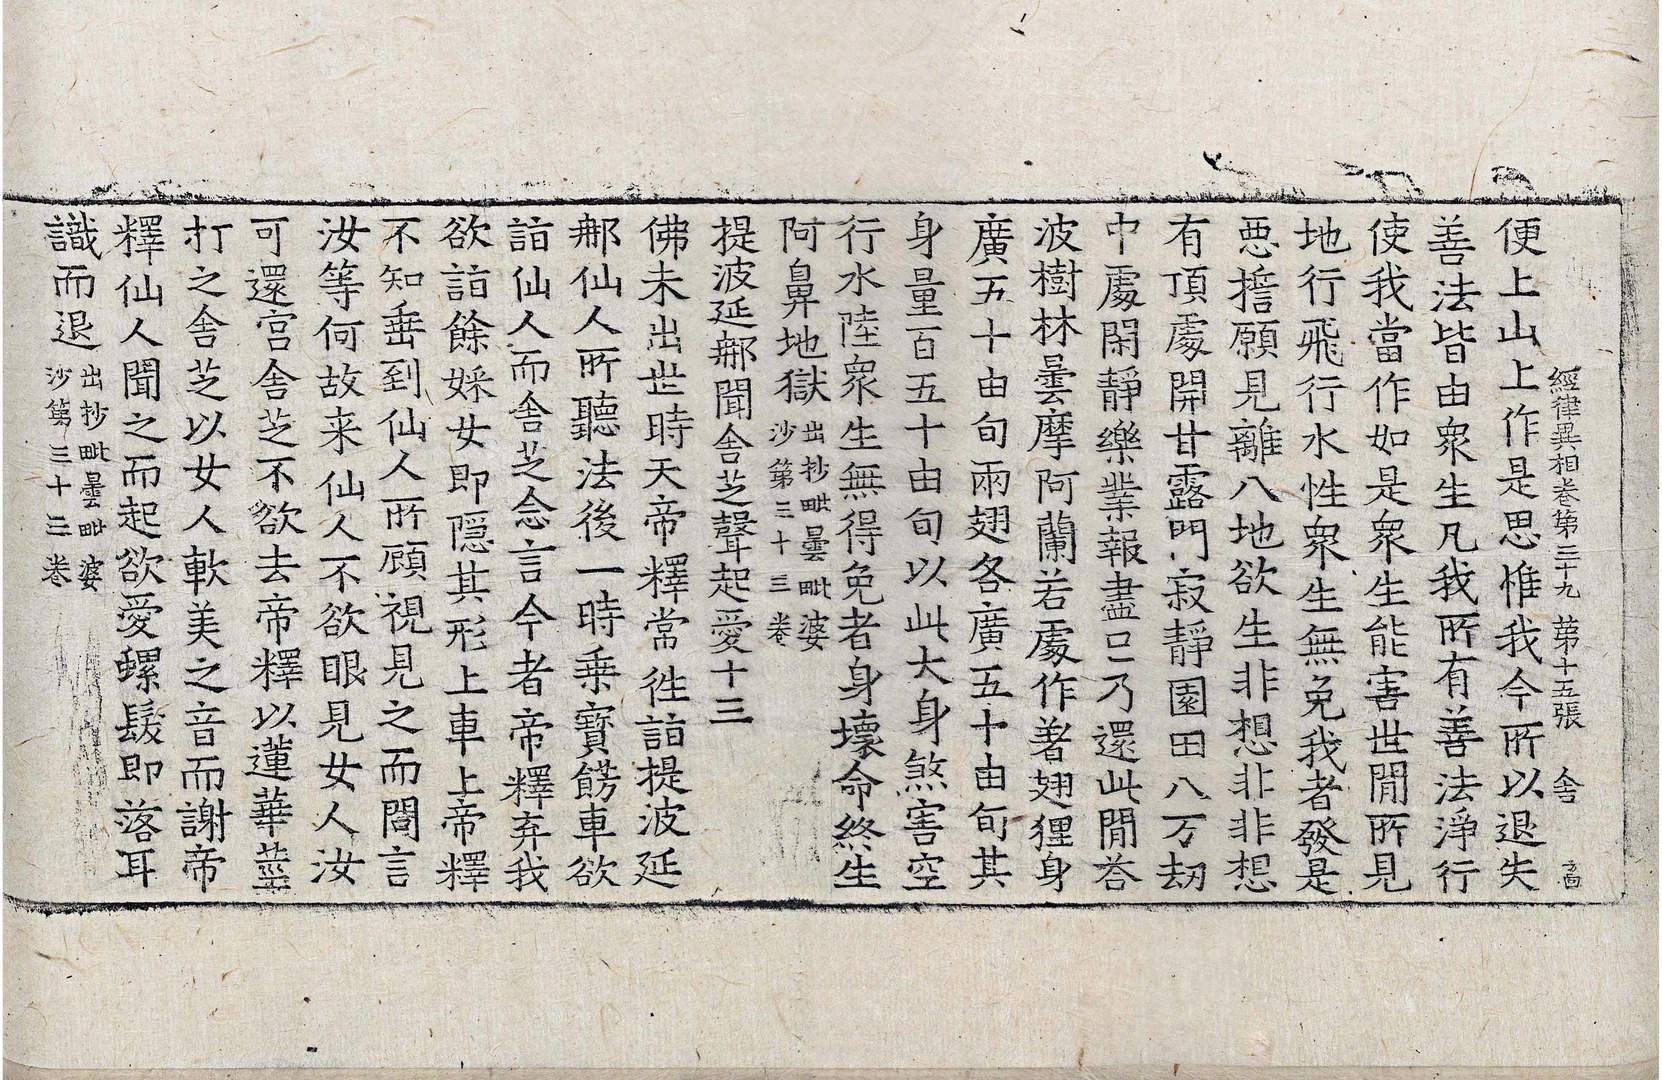 經律異相卷第三十九 第十五張 舍
便上山上作是思惟我今所以退失
善法皆由衆生凡我所有善法淨行
使我當作如是衆生能害世閒所見
地行飛行水性衆生無免我者發是
惡擔願見離八地欲生非想非非想
有頂處開甘露門寂靜園田八万劫
中處閑靜樂業報盡已乃還此閒荅
波樹林曇摩阿蘭若處作著翅狸身
廣五十由旬兩翅各廣五十由旬其
身量百五十由旬以此大身煞害空
行水陸衆生無得免者身壞命終生
阿鼻地獄出抄毗曇毗婆沙第三十三卷
提波延郍聞舍芝聲起愛十三
佛未出世時天帝釋常徃詣提波延
郍仙人所聽法後一時乗寳餝車欲
詣仙人而舍芝念言今者帝釋弃我
欲詣餘婇女即隱其形上車上帝釋
不知垂到仙人所顧視見之而閣言
汝等何故来仙人不欲眼見女人汝
可還宫舍芝不欲去帝釋以蓮華莖
打之舍芝以女人軟美之音而謝帝
釋仙人聞之而起欲愛螺髮即落耳
識而退出抄毗曇毗婆沙第三十三卷